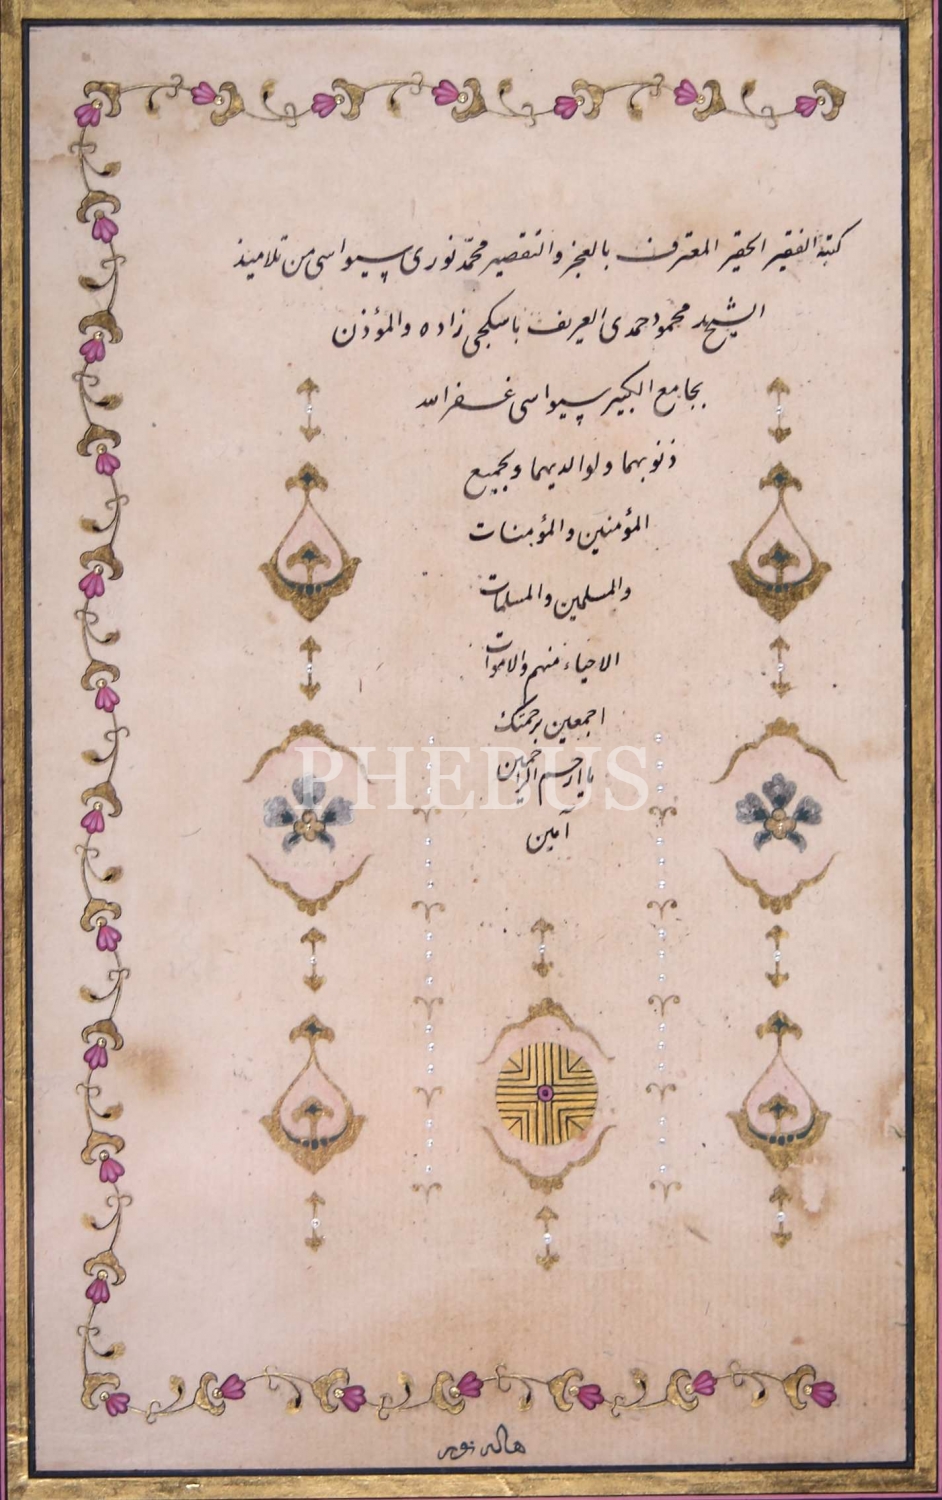 كتبه الفقير الحقير المعترف بالعجز والتقصير محمّد نوري سيواسى من تلاميذ
الشهير محمود حمدى العريف باسكجى زاده والمؤذن
بجامع الكبير سيواسى غفر الله
ذنوبهما ولوالديهما ولجميع
المؤمنين والمؤمنات
والمسلمين والمسلمات
الاحياء منهم والاموات
اجمعين برحمتك
يا ارحم الراحمين
PHEBUS
آمين